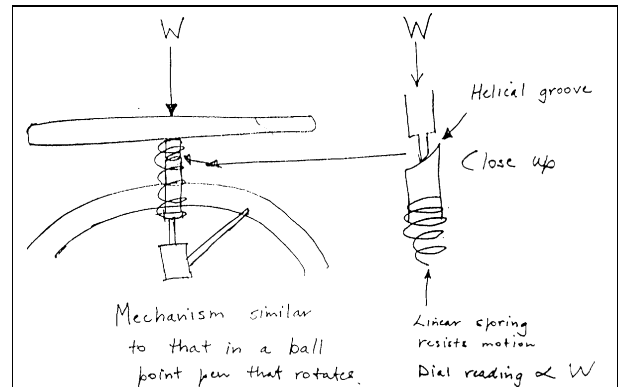 W
W
Helical groove
Close up
Mechanism similar
to that in a ball
point pen that rotates.
Linear spring
resists motion
Dial reading ∝ W